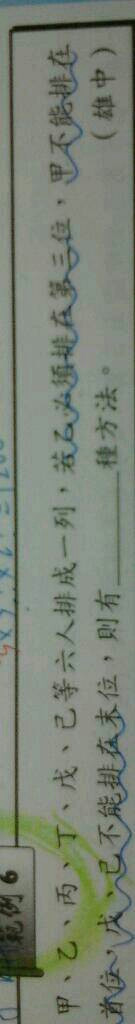 範例 6
甲、乙、丙、丁、戊、己等六人排成一列，若乙必須排在第三位，甲不能排在
首位，戊、己不能排在末位，則有______種方法。
（雄中）